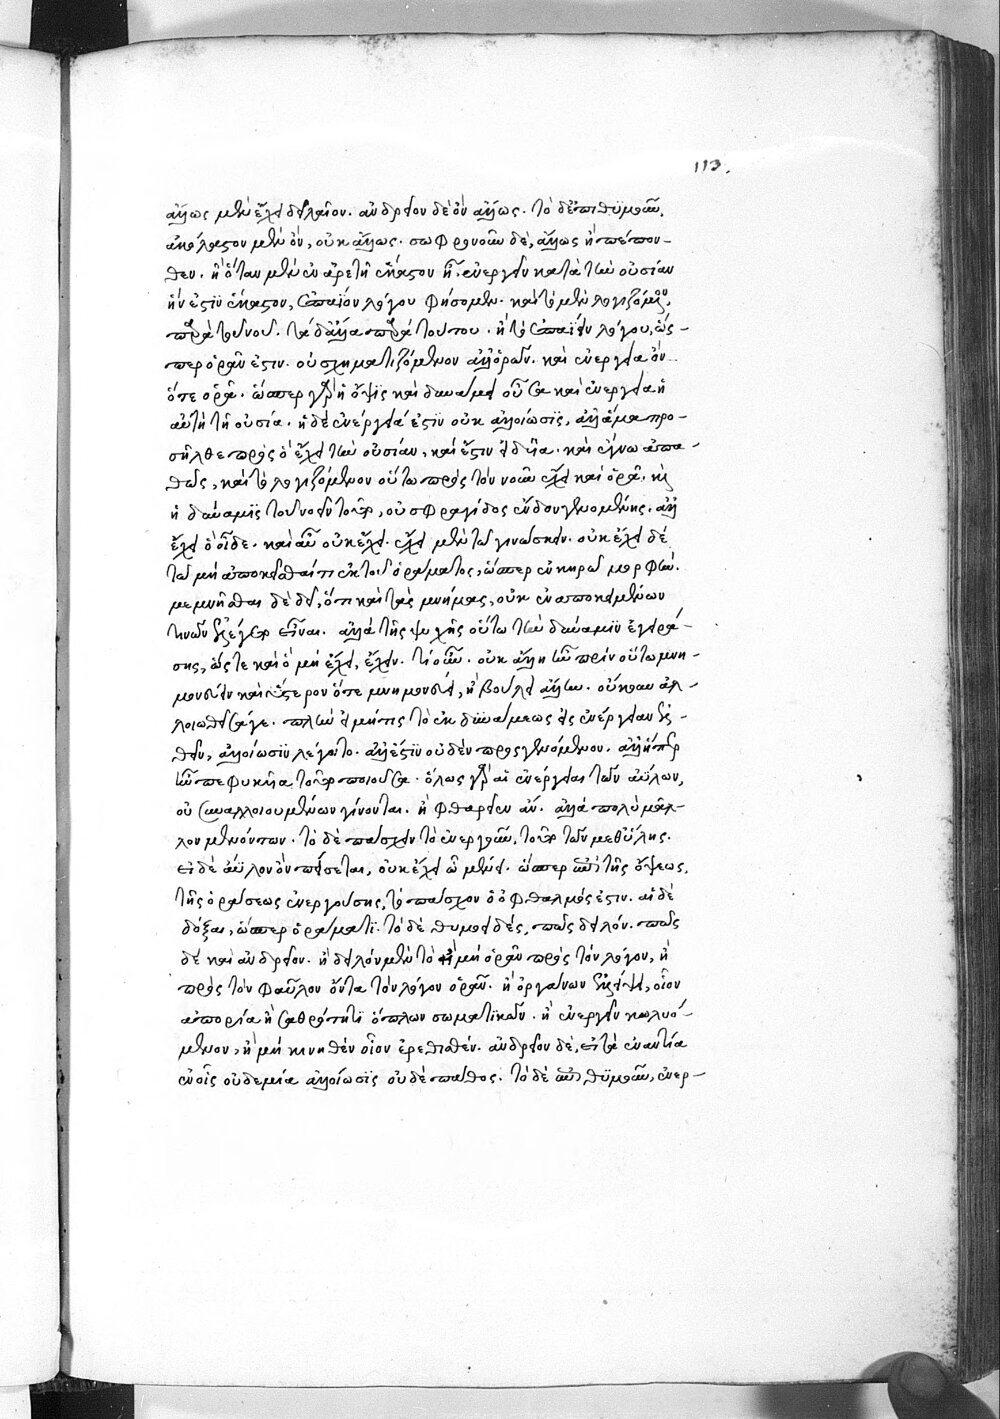 113.
ἄλλως μὲν ἔχει δειλαῖνον. ἀνδρεῖον δὲ ὂν ἄλλως. τὸ δ' ἐπιθυμοῦν,
ἀκόλαστον μὲν ὄν, οὐκ ἄλλως. σωφρονοῦν δὲ, ἄλλως ἢ πέπον-
θεν. ἢ ὅταν μὲν ἐν ἀρετῇ ἕκαστον ᾖ, ἐνεργεῖν κατὰ τὴν οὐσίαν
ἥν ἐστιν ἕκαστον, ἐπαῖον λόγου φήσομεν. καὶ τὸ μὲν λογιζόμενον,
παρὰ τοῦ νοῦ. τὰ δ' ἄλλα παρὰ τούτου. ἢ τὸ ἐπαΐειν λόγου, ὥσ-
περ ὁρᾶν ἐστιν. οὐ σχηματιζόμενον ἀλλ' ὁρῶν. καὶ ἐνεργείᾳ ὂν
ὅτε ὁρᾷ. ὥσπερ γὰρ ἡ ὄψις καὶ δυνάμει οὖσα καὶ ἐνεργείᾳ ἡ
αὐτὴ τῇ οὐσίᾳ. ἡ δὲ ἐνέργειά ἐστιν οὐκ ἀλλοίωσις, ἀλλ' ἅμα προ-
σῆλθε πρὸς ὃ ἔχει τὴν οὐσίαν, καὶ ἔστιν εἰδυῖα. καὶ ἔγνω ἀπα-
θῶς, καὶ τὸ λογιζόμενον οὕτω πρὸς τὸν νοῦν ἔχει καὶ ὁρᾷ. καὶ
ἡ δύναμις τοῦ νοεῖν τοῦτο, οὐ σφραγῖδος ἔνδον γενομένης. ἀλλ'
ἔχει ὃ εἶδε. καὶ αὖ οὐκ ἔχει. ἔχει μὲν τῷ γινώσκειν. οὐκ ἔχει δὲ
τῷ μὴ ἀποκεῖσθαί τι ἐκ τοῦ ὁράματος, ὥσπερ ἐν κηρῷ μορφήν.
μεμνῆσθαι δὲ δεῖ, ὅτι καὶ τὰς μνήμας, οὐκ ἐναποκειμένων
τινῶν ἐλέγετο εἶναι. ἀλλὰ τῆς ψυχῆς οὕτω τὴν δύναμιν ἐγειρά-
σης, ὥστε καὶ ὃ μὴ ἔχει, ἔχειν. τί οὖν. οὐκ ἄλλη ἦν πρὶν οὕτω μνη-
μονεύειν καὶ ὕστερον ὅτε μνημονεύει, ἢ βούλει ἄλλην. οὔκουν ἀλ-
λοιωθεῖσά γε. πλὴν εἰ μή τις τὸ ἐκ δυνάμεως εἰς ἐνέργειαν ἐλ-
θεῖν, ἀλλοίωσιν λέγοιτο. ἀλλ' ἔστιν οὐδὲν προσγενόμενον. ἀλλ' ἥπερ
ἦν πεφυκυῖα τοῦτο ποιοῦσα. ὅλως γὰρ αἱ ἐνέργειαι τῶν ἀΰλων,
οὐ συναλλοιουμένων γίνονται. ἢ φθαρεῖεν ἄν. ἀλλὰ πολὺ μᾶλ-
λον μενόντων. τὸ δὲ πάσχειν τὸ ἐνεργοῦν, τοῦτο τῶν μεθ' ὕλης.
εἰ δὲ ἄϋλον ὂν πείσεται, οὐκ ἔχει ᾧ μένει. ὥσπερ ἐπὶ τῆς ὄψεως,
τῆς ὁράσεως ἐνεργούσης, τὸ πάσχον ὁ ὀφθαλμός ἐστιν. αἱ δὲ
δόξαι, ὥσπερ ὁράματι. τὸ δὲ θυμοειδές, πῶς δειλόν. πῶς
δὲ καὶ ἀνδρεῖον. ἢ δειλὸν μὲν τῷ ἢ μὴ ὁρᾶν πρὸς τὸν λόγον, ἢ
πρὸς τὸν φαῦλον ὄντα τὸν λόγον ὁρᾶν. ἢ ὀργάνων ἐλλείψει, οἷον
ἀπορίᾳ ἢ σαθρότητι ὅπλων σωματικῶν. ἢ ἐνεργεῖν κωλυό-
μενον, ἢ μὴ κινηθὲν οἷον ἐρεθισθέν. ἀνδρεῖον δὲ, εἰ τὰ ἐναντία
ἐν οἷς οὐδεμία ἀλλοίωσις οὐδὲ πάθος. τὸ δὲ ἐπιθυμοῦν, ἐνερ-